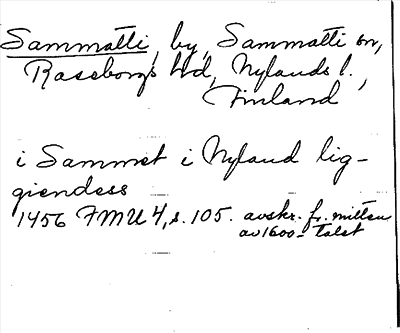 Sammatti, by, Sammatti sn,
Raseborgs hd, Nylands l.,
Finland
i Sammet i Nyland lig-
giendess
1456 FMU 4, s. 105. avskr. fr. mitten
av 1600-talet